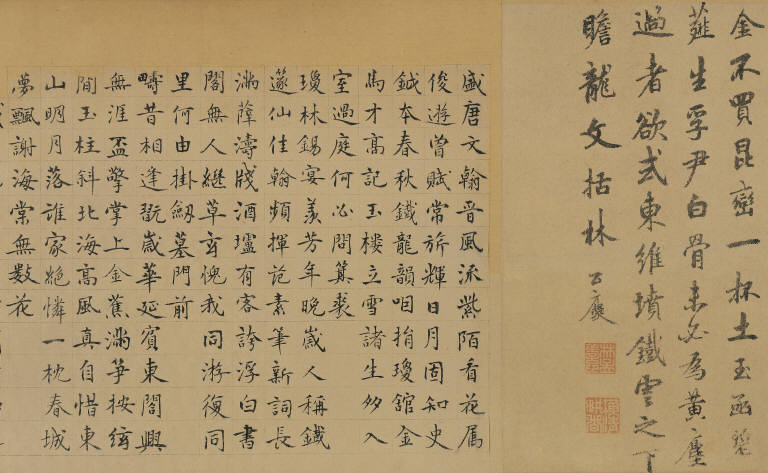 金不買昆巒一杯土玉函
薤生孚尹白骨未必為黃塵
過者欲式東維墳鐵雲之下
瞻龍文括林
公慶
盛唐文翰晉風流紫陌看花屬
俊遊曾賦常旂輝日月固知史
鉞本春秋鐵龍韻咽捐瓊舘金
馬才高記玉樓立雪諸生多入
室過庭何必問箕裘
瓊林錫宴羨芳年晚歲人稱鐵
篴仙佳翰頻揮詒素筆新詞長
滿薛濤牋酒壚有客誇浮白書
閣無人繼草玄愧我同游復同
里何由掛劔墓門前
疇昔相逢翫歲華延賓東閣興
無涯盃擎掌上金蕉滿箏按絃
間玉柱斜北海高風真自惜東
山明月落誰家絕憐一枕春城
夢飄謝海棠無數花